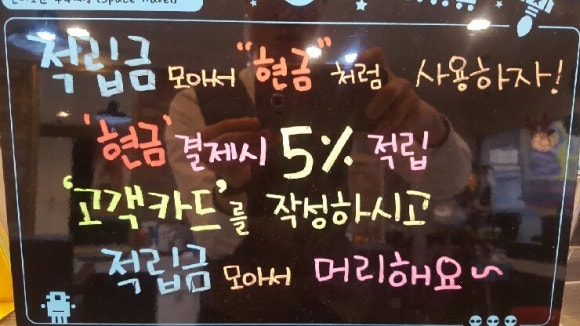 적립금 모아서 "현금" 처럼 사용하자!
'현금' 결제시 5% 적립
'고객카드'를 작성하시고
적립금 모아서 머리해요~